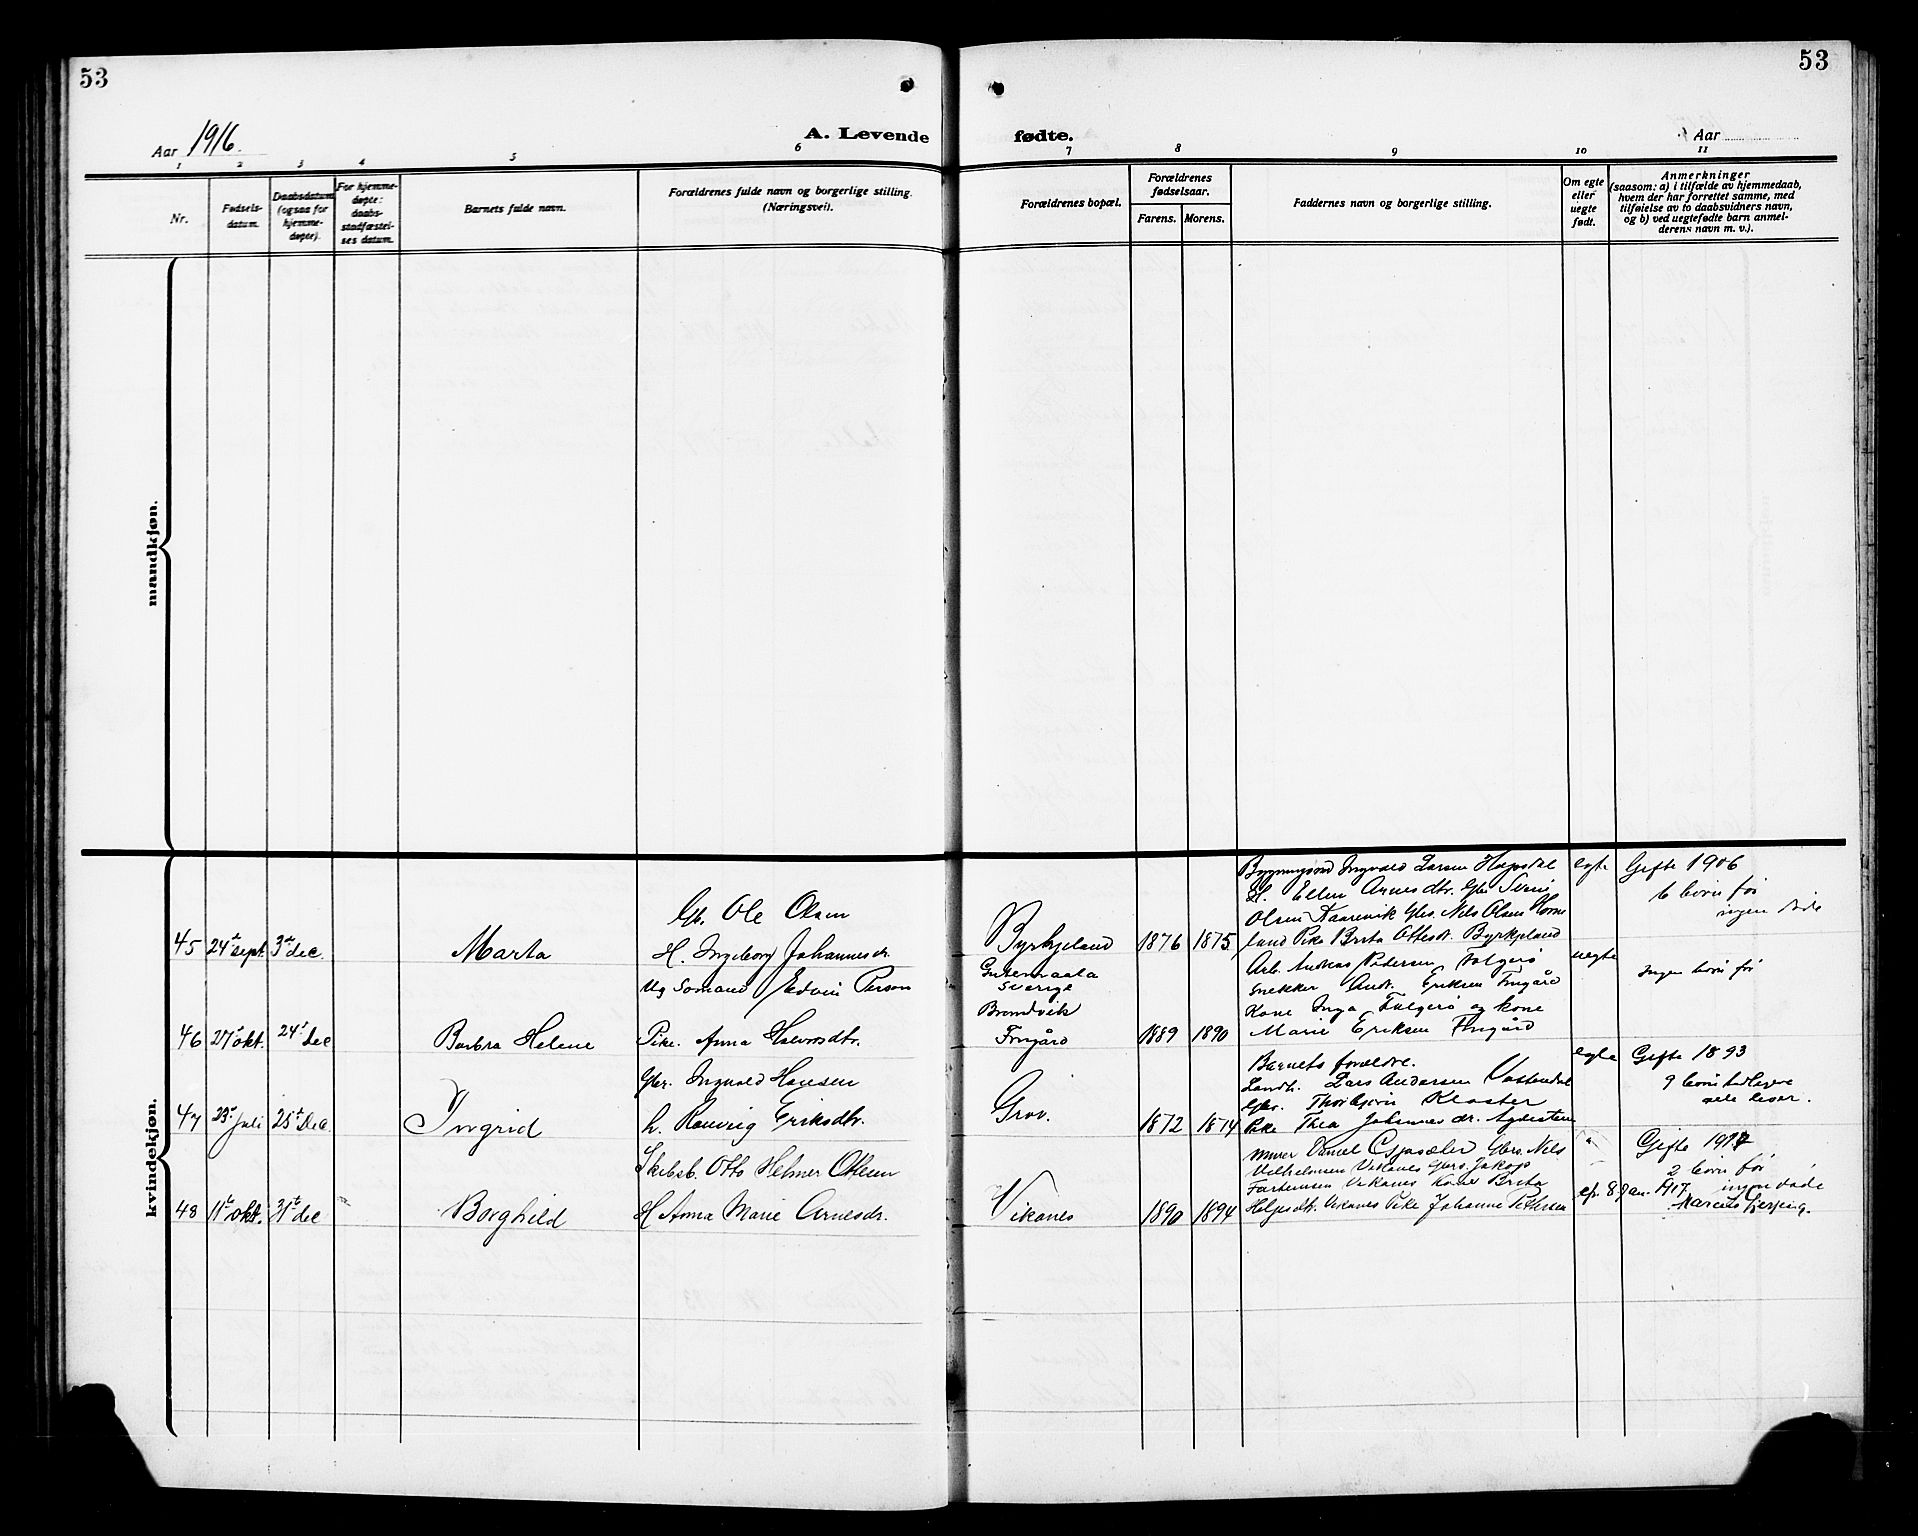 53
53
Aar 1916.
A. Levende
fødte.
Aar
1 2 3 4 5 6
7 8 9 10 11
Nr.
Fødsels-
datum.
Daabsdatum
(ogsaa for
hjemme-
døpte).
For hjemme-
døpte:
daabs-
stadfæstel-
ses datum.
Barnets fulde navn.
Forældrenes fulde navn og borgerlige stilling.
(Næringsvei).
Forældrenes bopæl.
Forældrenes
fødselsaar.
Farens. Morens.
Faddernes navn og borgerlige stilling.
Om egte
eller
uegte
født.
Anmerkninger
(saasom: a) i tilfælde av hjemmedaab,
hvem der har forrettet samme, med
tilføielse av to daabsvidners navn,
og b) ved uegtefødte barn anmel-
derens navn m. v.).
mandkjøn.
kvindekjøn.
45 24de sept. 3de dec. Marta
Gbr. Ole Olsen
H. Ingeborg Johannesdr.
Byrkjeland 1876 1875
Ingvald Larsen Hopsdal
H. Ellen Arnesdtr. Gbr.
Olsen Kaarevik Gbr. Nils Olsen Horne
land Pike Brita Ottesdr. Byrkjeland
egte
Gifte 1906
6 born før
ingen døde
46 27de okt. 24de dec Barbra Helene
Ug Sømand Edvin Person
Pike. Anna Halvorsdtr.
Sverige
Bremdvik
1889 1890
Arb. Andreas Pedersen
Snekker Andr. Eriksen
Kone Inga og kone
Marie Eriksen
uegte
Ingen born før
47 23de juli 25de Dec. Ingrid
Gbr. Ingvald Hansen
h. Ranveig Eriksdtr.
Grov. 1872 1874
Barnets forældre.
Landh. Lars Andersen
Gbr. Thorbjørn Kloster
Pike Thea Johannesdr.
egte
Gifte 1893
9 born tidligere
alle lever.
48 11te okt. 31te dec Borghild
Skibsb. Otto Helmer Ottesen
H Anna Marie Arnesdr.
Vikanes 1890 1894
Murer Daniel Gbr. Nils
Vilhelmsen Vikanes Gbr. Jakop
Vikanes Kone Brita
Helgesdtr. Vikanes Pike Johanne Pettersen
"
Gifte 1912
2 born før
ingen døde
8 Jan. 1917